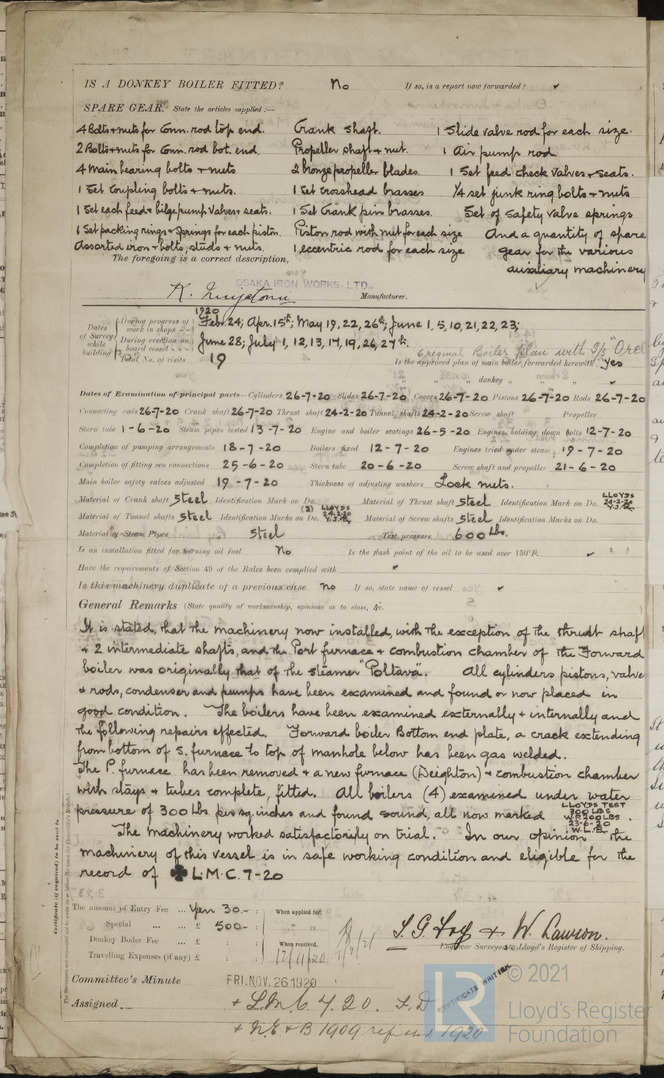 IS A DONKEY BOILER FITTED? No If so, is a report now forwarded? ✓
SPARE GEAR. State the articles supplied:—
4 Bolts + nuts for Conn. rod top end. Crank shaft. 1 Slide valve rod for each size.
2 Bolts + nuts for Conn. rod bot. end. Propeller shaft + nut. 1 Air pump rod
4 Main bearing bolts + nuts 2 bronze propeller blades. 1 Set feed check valves + seats.
1 Set Coupling bolts + nuts. 1 Set Crosshead brasses 1/4 set junk ring bolts + nuts
1 Set each feed + bilge pump valves + seats. 1 Set Crank pin brasses. Set of Safety valve springs
1 Set packing rings + Springs for each piston. Piston rod with nut for each size And a quantity of spare
Assorted iron + bolts, studs + nuts. 1 eccentric rod for each size gear for the various
The foregoing is a correct description, auxiliary machinery
OSAKA IRON WORKS, LTD.,
Manufacturer.
1920
Dates of Survey while building
During progress of work in shops - - Feb. 24; Apr. 15th; May 19, 22, 26th; June 1, 5, 10, 21, 22, 23;
During erection on board vessel - - - June 28; July 1, 12, 13, 17, 19, 26, 27th.
Total No. of visits 19
Original Boiler plan with
Is the approved plan of main boiler forwarded herewith Yes
" " " donkey " " "
Dates of Examination of principal parts— Cylinders 26-7-20 Slides 26-7-20 Covers 26-7-20 Pistons 26-7-20 Rods 26-7-20
Connecting rods 26-7-20 Crank shaft 26-7-20 Thrust shaft 24-2-20 Tunnel shafts 24-2-20 Screw shaft Propeller
Stern tube 1-6-20 Steam pipes tested 13-7-20 Engine and boiler seatings 26-5-20 Engines holding down bolts 12-7-20
Completion of pumping arrangements 18-7-20 Boilers fixed 12-7-20 Engines tried under steam 19-7-20
Completion of fitting sea connections 25-6-20 Stern tube 20-6-20 Screw shaft and propeller 21-6-20
Main boiler safety valves adjusted 19-7-20 Thickness of adjusting washers Lock nuts.
Material of Crank shaft Steel Identification Mark on Do. Material of Thrust shaft Steel Identification Mark on Do. LLOYDS 24-2-20
Material of Tunnel shafts Steel Identification Marks on Do. (2) LLOYDS 24-2-20 Material of Screw shafts Steel Identification Marks on Do.
Material of Steam Pipes Steel Test pressure 600 Lbs.
Is an installation fitted for burning oil fuel No Is the flash point of the oil to be used over 150°F. ✓
Have the requirements of Section 49 of the Rules been complied with ✓
Is this machinery duplicate of a previous case No If so, state name of vessel ✓
General Remarks (State quality of workmanship, opinions as to class, &c.
It is stated, that the machinery now installed, with the exception of the thrust shaft
+ 2 intermediate shafts, and the Port furnace + combustion chamber of the Forward
boiler was originally that of the steamer "Poltava". All cylinders pistons, valve
+ rods, condenser and pumps have been examined and found or now placed in
good condition. The boilers have been examined externally + internally and
the following repairs effected. Forward boiler Bottom end plate, a crack extending
from bottom of S. furnace to top of manhole below has been gas welded.
The P. furnace has been removed + a new furnace (Deighton) + combustion chamber
with stays + tubes complete, fitted. All boilers (4) examined under water
pressure of 300 Lbs per sq inches and found sound, all now marked LLOYDS TEST 300 LBS W.P. 200 LBS 23-6-20 W.L.
The machinery worked satisfactorily on trial. In our opinion the
machinery of this vessel is in safe working condition and eligible for the
record of ✠ L.M.C. 7-20
Certificate (if required) to be sent to
The amount of Entry Fee ... Yen 30-: When applied for,
Special ... £ 500-:
Donkey Boiler Fee ... £ : : When received,
Travelling Expenses (if any) £ : : 17/11/20
W. Lawson.
Engineer Surveyors to Lloyd's Register of Shipping.
Committee's Minute FRI. NOV. 26 1920
Assigned + L.M.C. 7.20. F.D. CERTIFICATE WRITTEN
+ N.E + B 1909 1920
LR
© 2021
Lloyd's Register
Foundation